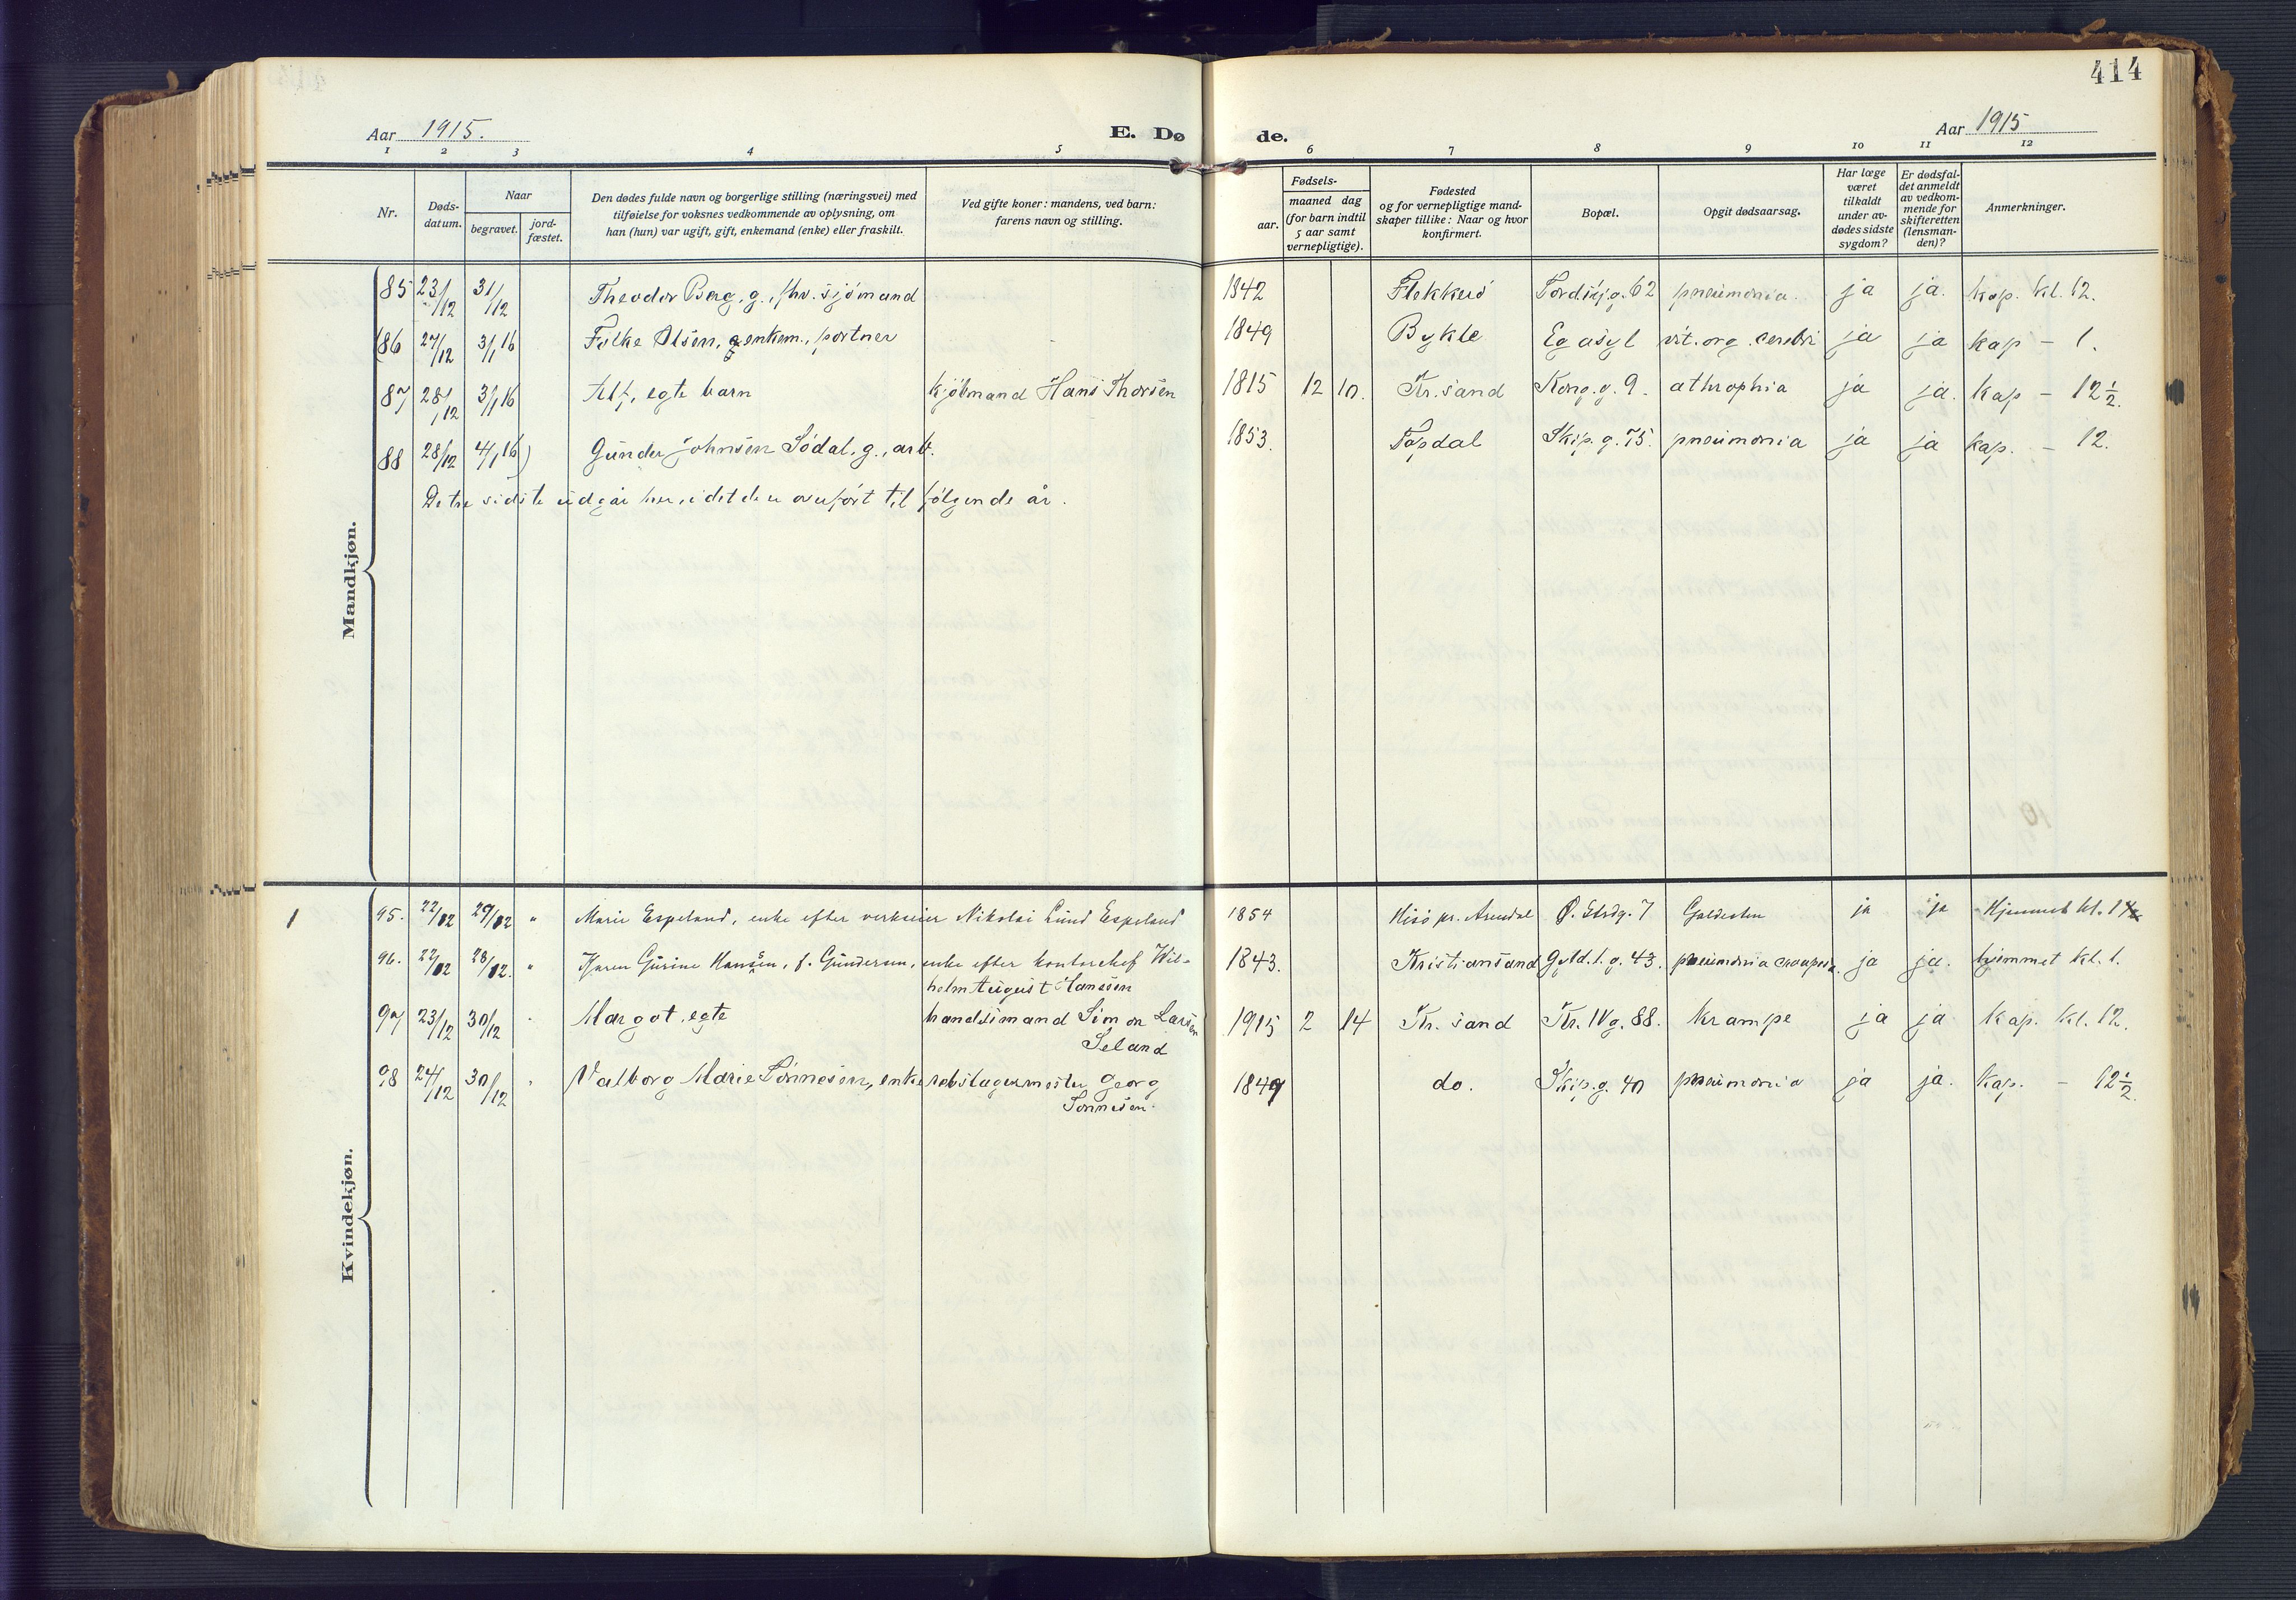 414
Aar 1915. E. Dø de. Aar 1915
1 2 3 4 5 6 7 8 9 10 11 12
Nr.
Døds-
datum.
Naar
begravet.
jord-
fæstet.
Den dødes fulde navn og borgerlige stilling (næringsvei) med
tilføielse for voksnes vedkommende av oplysning, om
han (hun) var ugift, gift, enkemand (enke) eller fraskilt.
Ved gifte koner: mandens, ved barn:
farens navn og stilling.
Fødsels-
aar.
maaned dag
(for barn indtil
5 aar samt
vernepligtige).
Fødested
og for vernepligtige mand-
skaper tillike: Naar og hvor
konfirmert.
Bopæl.
Opgit dødsaarsag.
Har læge
været
tilkaldt
under av-
dødes sidste
sygdom?
Er dødsfal-
det anmeldt
av vedkom-
mende for
skifteretten
(lensman-
den)?
Anmerkninger.
Mandkjøn.
85 23/12 31/12 Theodor Berg, g., fhv. sjömand 1842 Flekkerö Tordskj.g. 62 pneumonia. ja ja. kap. kl. 12.
(86 27/12 3/1 16 Folke Olsen, enkem., portner 1849 Bykle Eg asyl vit. org. cerebri ja ja kap – 1.
87 28/12 3/1 16 Alf, egte barn kjöbmand Hans Thorsen 1815 12 10. Kr.sand Kong.g. 9. athrophia ja ja. kap – 12 1/2.
88 28/12 4/1 16) Gunder Johnsen Södal, g., arb. 1853. Topdal Skip.g. 75. pneumonia ja ja kap. – 12.
De tre sidste udgår her, idet de er overfört til fölgende år.
Kvindekjøn.
1 95. 22/12 29/12 " Marie Espeland, enke efter verkseier Nikolai Lund Espeland 1854 Hisö pr. Arendal Ø. Strdg. 7 Galdesten ja ja Hjemmet kl. 1
96. 22/12 28/12. " Karen Gurine Hanssen, f. Gundersen, enke efter kontorchef Wil-
helm August Hanssen 1843. Kristiansand Gyld.l.g. 43. pneumonia crouposa. ja ja. hjemmet kl. 1.
97 23/12 30/12 " Margot, egte handelsmand Simon Larsen
Seland 1915 2 14 Kr. sand Kr. IV g. 88. krampe ja ja kap. kl. 12.
98 24/12 30/12 " Valborg Marie Sönnesen, enke rebslagermester Georg
Sönnesen. 1849 do. Skip.g. 40 pneumonia ja ja. kap. – 12 1/2.